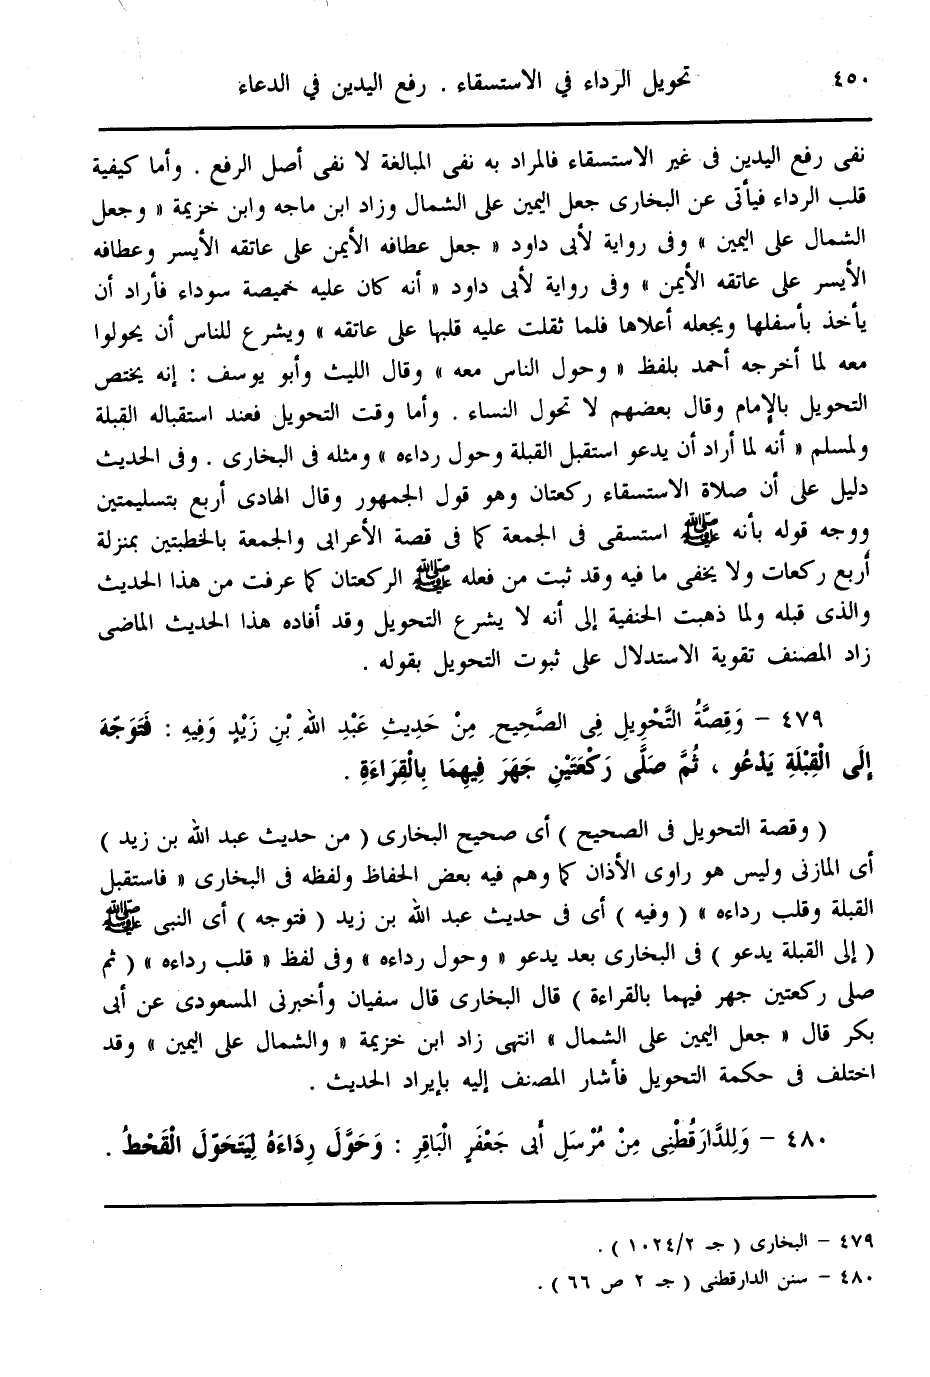 ٤٥٠
تحويل الرداء في الاستسقاء . رفع اليدين في الدعاء
نفى رفع اليدين فى غير الاستسقاء فالمراد به نفى المبالغة لا نفى أصل الرفع . وأما كيفية
قلب الرداء فيأتى عن البخارى جعل اليمين على الشمال وزاد ابن ماجه وابن خزيمة « وجعل
الشمال على اليمين » وفى رواية لأبى داود « جعل عطافه الأيمن على عاتقه الأيسر وعطافه
الأيسر على عاتقه الأيمن » وفى رواية لأبى داود « أنه كان عليه خميصة سوداء فأراد أن
يأخذ بأسفلها ويجعله أعلاها فلما ثقلت عليه قلبها على عاتقه » ويشرع للناس أن يحولوا
معه لما أخرجه أحمد بلفظ « وحول الناس معه » وقال الليث وأبو يوسف : إنه يختص
التحويل بالإمام وقال بعضهم لا تحول النساء . وأما وقت التحويل فعند استقباله القبلة
ولمسلم « أنه لما أراد أن يدعو استقبل القبلة وحول رداءه » ومثله فى البخارى . وفى الحديث
دليل على أن صلاة الاستسقاء ركعتان وهو قول الجمهور وقال الهادى أربع بتسليمتين
ووجه قوله بأنه ﷺ استسقى فى الجمعة كما فى قصة الأعرابى والجمعة بالخطبتين بمنزلة
أربع ركعات ولا يخفى ما فيه وقد ثبت من فعله ﷺ الركعتان كما عرفت من هذا الحديث
والذى قبله ولما ذهبت الحنفية إلى أنه لا يشرع التحويل وقد أفاده هذا الحديث الماضى
زاد المصنف تقوية الاستدلال على ثبوت التحويل بقوله .
٤٧٩ – وَقِصَّةُ التَّحْوِيلِ فِى الصَّحِيحِ مِنْ حَدِيثِ عَبْدِ اللهِ بْنِ زَيْدٍ وَفِيهِ : فَتَوَجَّهَ
إِلَى الْقِبْلَةِ يَدْعُو ، ثُمَّ صَلَّى رَكْعَتَيْنِ جَهَرَ فِيهِمَا بِالْقِرَاءَةِ .
( وقصة التحويل فى الصحيح ) أى صحيح البخارى ( من حديث عبد الله بن زيد )
أى المازنى وليس هو راوى الأذان كما وهم فيه بعض الحفاظ ولفظه فى البخارى « فاستقبل
القبلة وقلب رداءه » ( وفيه ) أى فى حديث عبد الله بن زيد ( فتوجه ) أى النبى ﷺ
( إلى القبلة يدعو ) فى البخارى بعد يدعو « وحول رداءه » وفى لفظ « قلب رداءه » ( ثم
صلى ركعتين جهر فيهما بالقراءة ) قال البخارى قال سفيان وأخبرنى المسعودى عن أبى
بكر قال « جعل اليمين على الشمال » انتهى زاد ابن خزيمة « والشمال على اليمين » وقد
اختلف فى حكمة التحويل فأشار المصنف إليه بإيراد الحديث .
٤٨٠ – وَلِلدَّارَقُطْنِى مِنْ مُرْسَلِ أَبى جَعْفَرٍ الْبَاقِرِ : وَحَوَّلَ رِدَاءَهُ لِيَتَحَوَّلَ الْقَحْطُ .
٤٧٩ – البخارى ( جـ ١٠٢٤/٢ ) .
٤٨٠ – سنن الدارقطنى ( جـ ٢ ص ٦٦ ) .